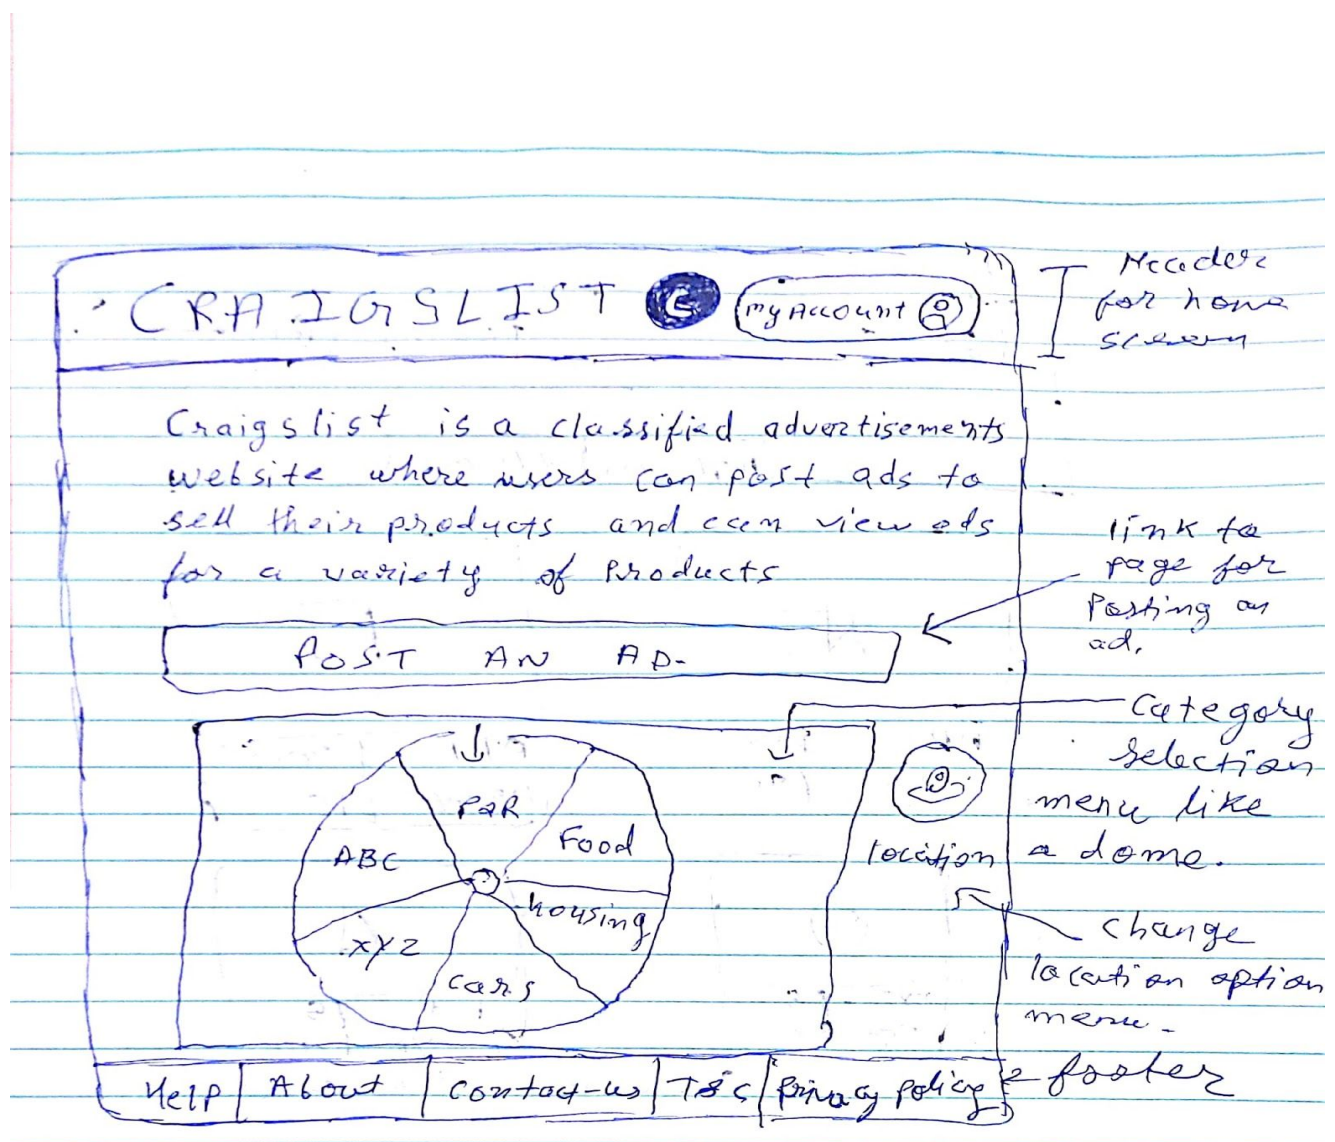 CRAIGSLIST C my Account
Header
for home
screen
Craigslist is a classified advertisements
website where users can post ads to
sell their products and can view ads
for a variety of Products
link to
page for
Posting an
ad.
POST AN AD.
Category
selection
menu like
a dome.
PQR
Food
ABC
housing
XYZ
cars
location
change
location option
menu.
Help About Contact-us T&C Privacy policy
footer